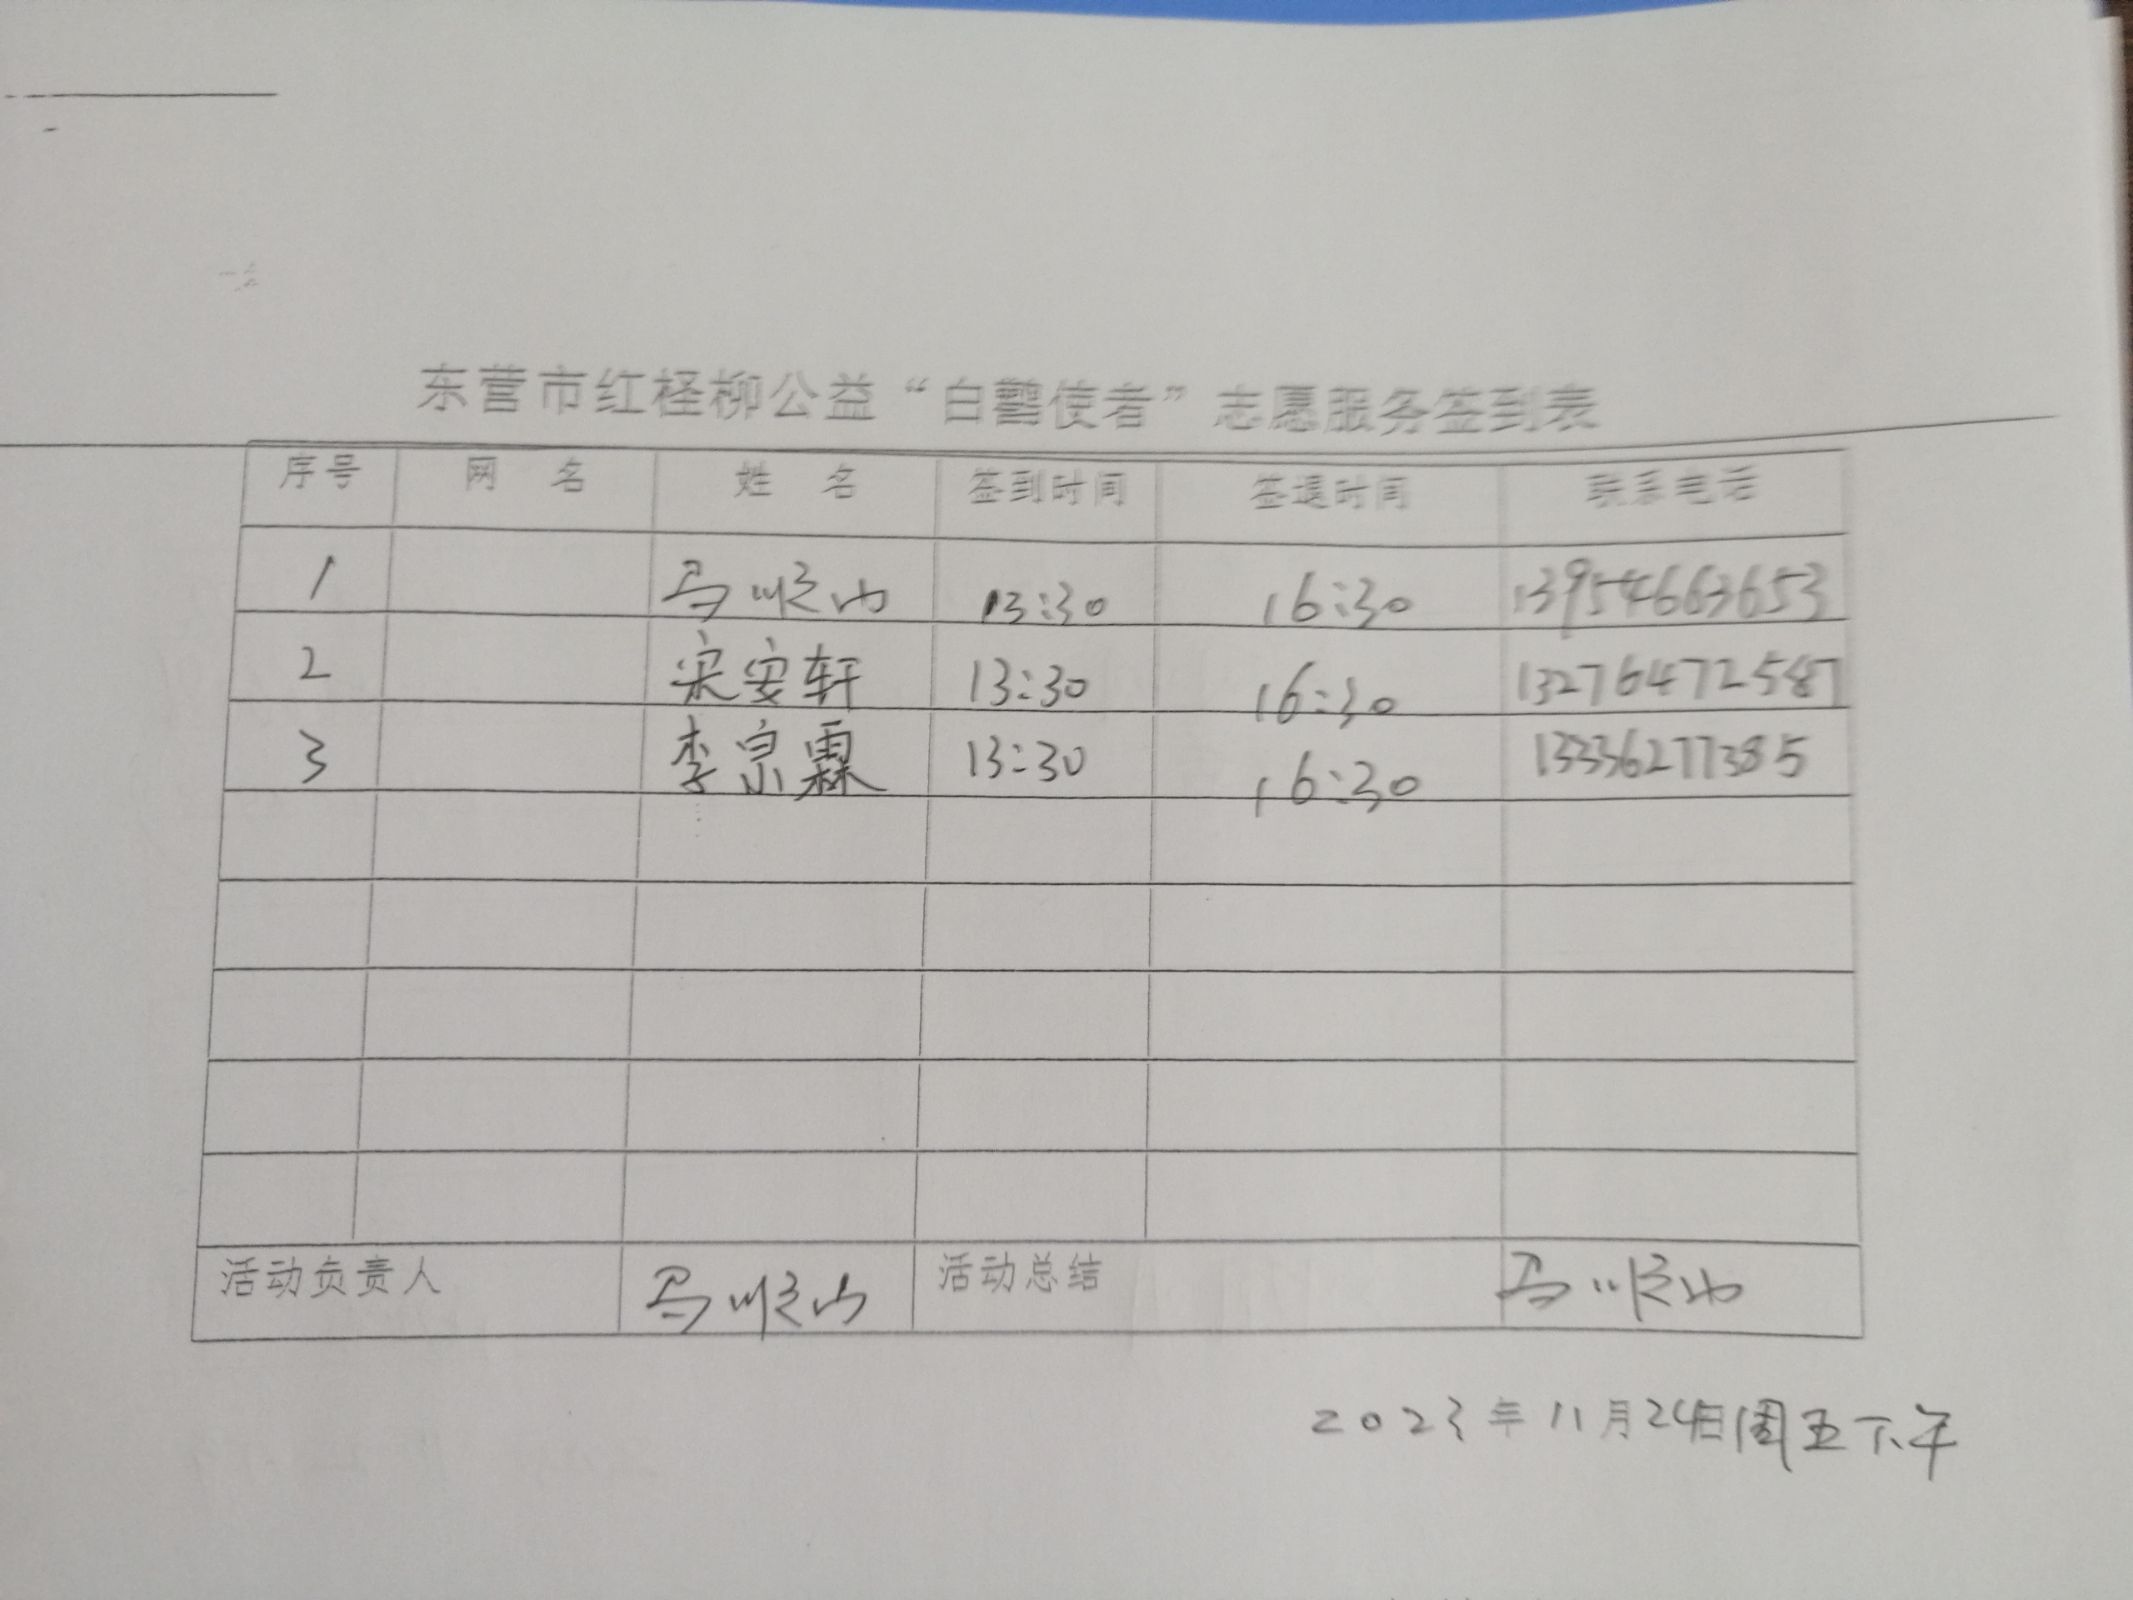 东营市红柽柳公益“白鹭使者”志愿服务签到表
序号 网 名 姓 名 签到时间 签退时间 联系电话
1 马顺山 13:30 16:30 13954663653
2 宋安轩 13:30 16:30 13276472587
3 李宗霖 13:30 16:30 13336277385
活动负责人 马顺山 活动总结 马顺山
2023年11月24日周五下午